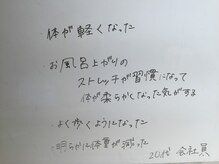 ・体が軽くなった
・お風呂上がりの
ストレッチが習慣になって
体が柔らかくなった気がする
・よく歩くようになった
・明らかに体重が減った
20代 会社員